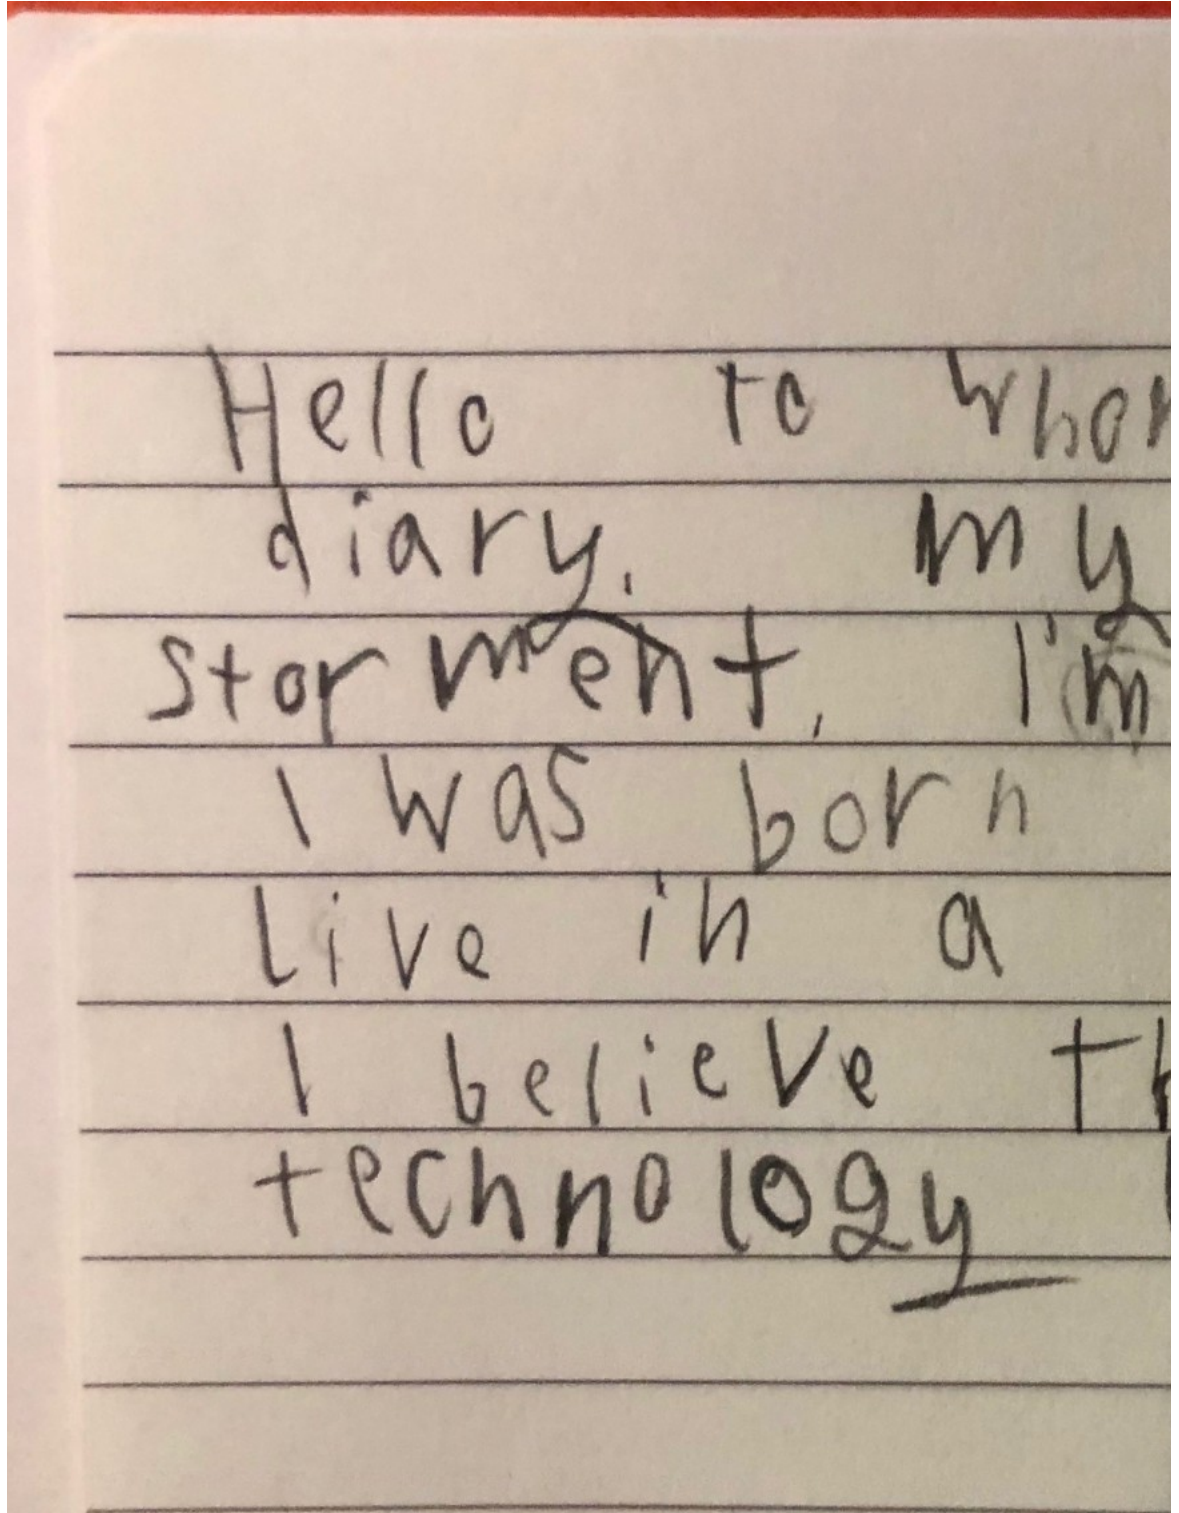 Hello to whom
diary. My
storment. I'm
I was born
Live in a
I believe th
technology